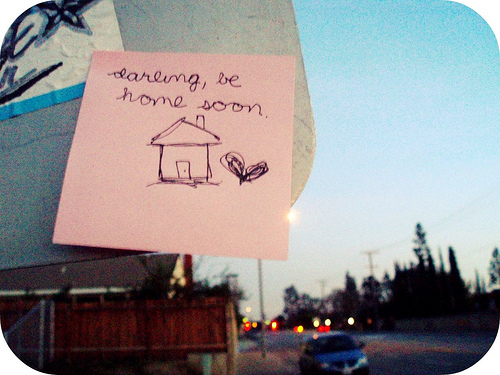 darling, be
home soon.